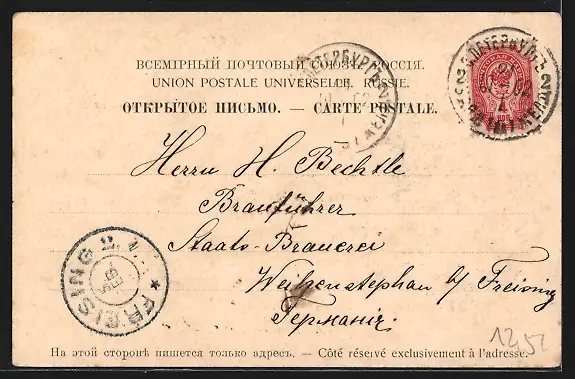 ВСЕМІРНЫЙ ПОЧТОВЫЙ СОЮЗЪ. РОССІЯ.
UNION POSTALE UNIVERSELLE. RUSSIE.
ОТКРЫТОЕ ПИСЬМО. — CARTE POSTALE.
Herrn H. Bechtle
Brauführer
Staats-Brauerei
Weihenstephan b/ Freising
Германія
FREISING
1252
На этой сторонѣ пишется только адресъ. — Côté réservé exclusivement à l'adresse.